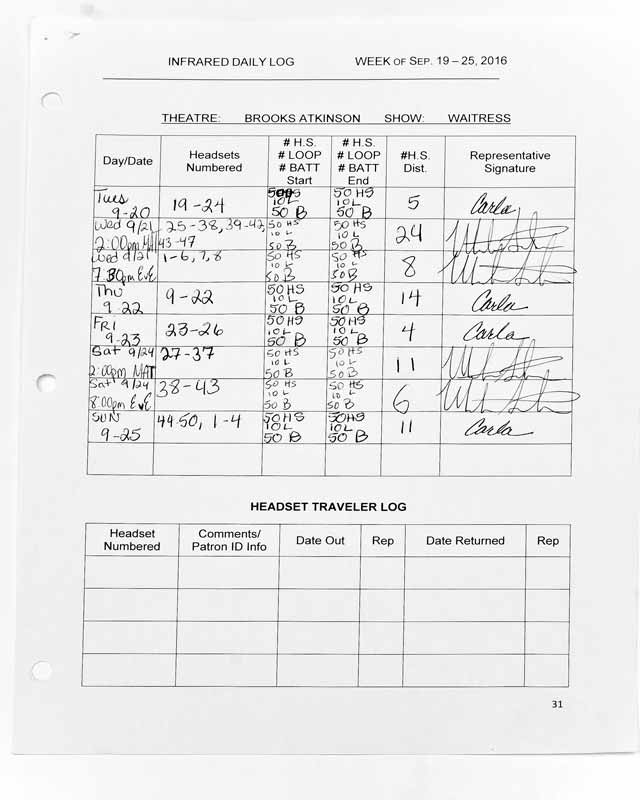 INFRARED DAILY LOG WEEK OF SEP. 19 – 25, 2016
THEATRE: BROOKS ATKINSON SHOW: WAITRESS
Day/Date Headsets Numbered # H.S. # LOOP # BATT Start # H.S. # LOOP # BATT End #H.S. Dist. Representative Signature
Tues 9-20 19-24 50HS 10L 50 B 50 HS 10L 50 B 5 Carla
Wed 9/21 2:00pm MAT 25-38, 39-42, 43-47 50 HS 10 L 50 B 50 HS 10 L 50 B 24
Wed 9/21 7:30pm EVE 1-6, 7, 8 50 HS 10 L 50 B 50 HS 10 L 50 B 8
Thu 9-22 9-22 50 HS 10 L 50 B 50 HS 10 L 50 B 14 Carla
FRI 9-23 23-26 50HS 10L 50 B 50HS 10L 50 B 4 Carla
Sat 9/24 2:00pm MAT 27-37 50 HS 10 L 50 B 50 HS 10 L 50 B 11
Sat 9/24 8:00pm EVE 38-43 50 HS 10 L 50 B 50 HS 10 L 50 B 6
SUN 9-25 44-50, 1-4 50HS 10L 50 B 50HS 10L 50 B 11 Carla
HEADSET TRAVELER LOG
Headset Numbered Comments/ Patron ID Info Date Out Rep Date Returned Rep
31